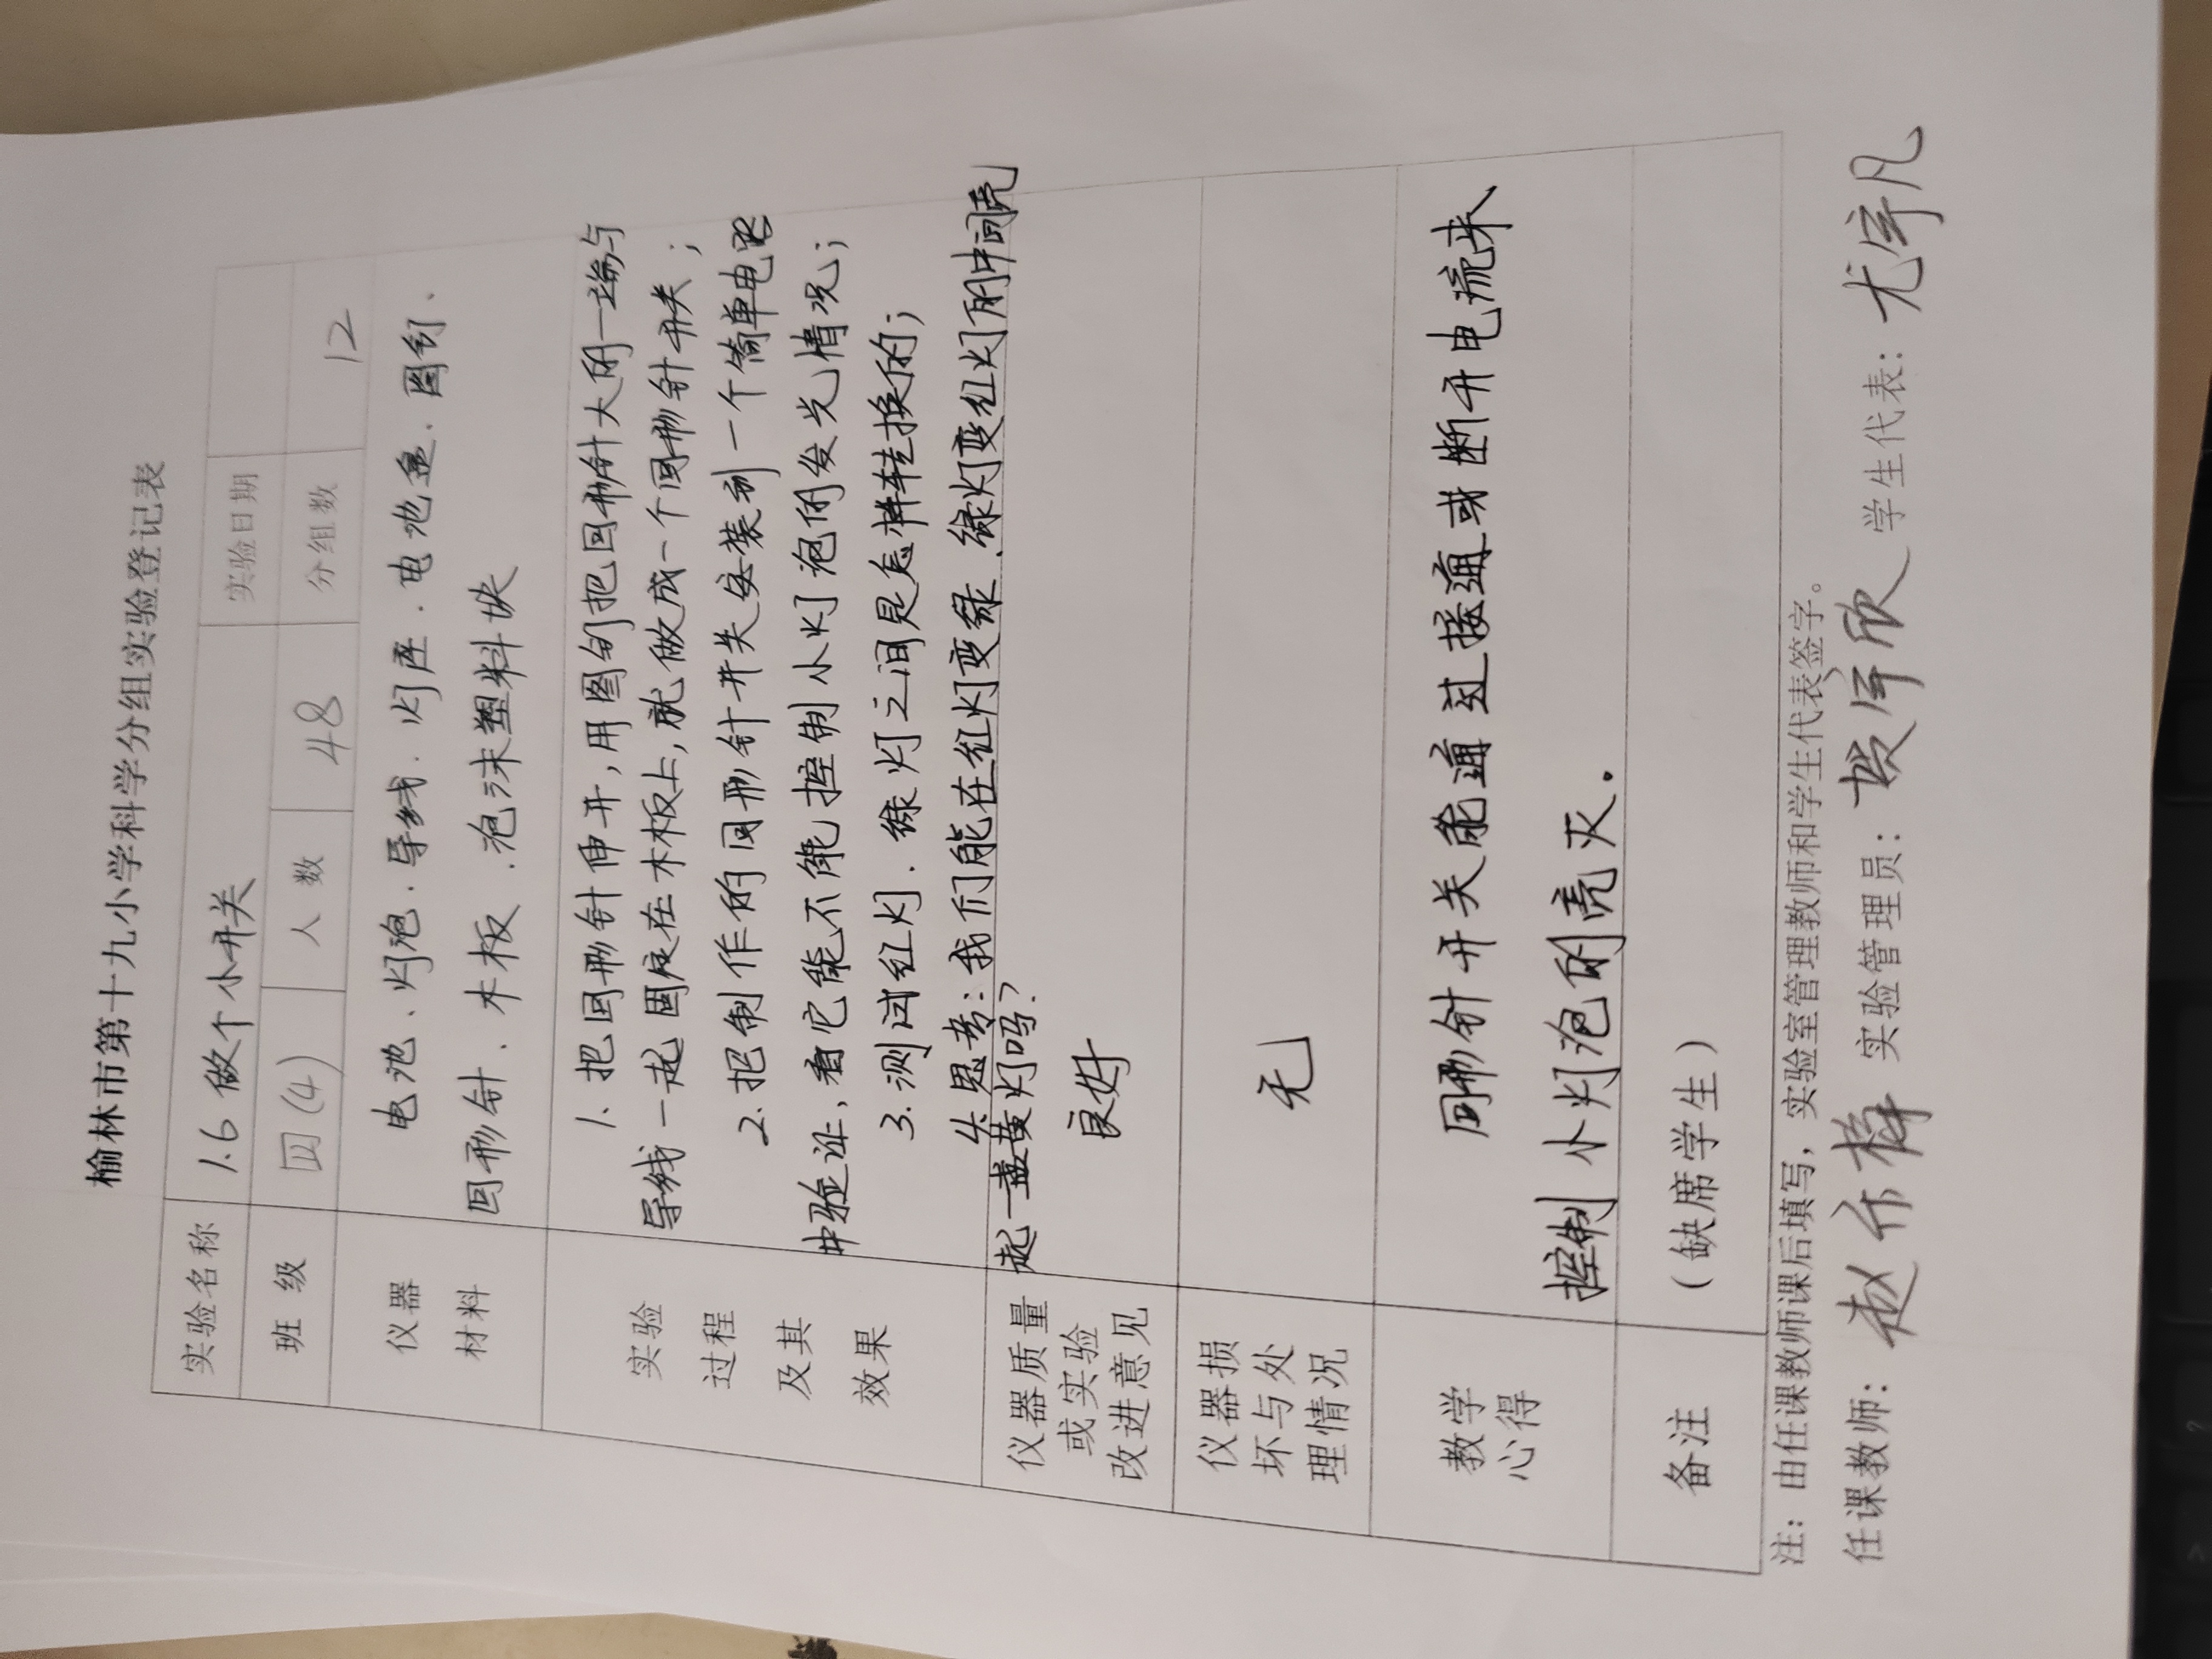 榆林市第十九小学科学分组实验登记表
实验名称 1.6 做个小开关 实验日期
班 级 四(4) 人 数 48 分组数 12
仪器 材料
电池、灯泡、导线、灯座、电池盒、图钉、
回形针、木板、泡沫塑料块
实验 过程 及其 效果
1. 把回形针伸开,用图钉把回形针大的一端与
导线一起固定在木板上,就做成一个回形针开关;
2. 把制作的回形针开关安装到一个简单电路
中验证,看它能不能控制小灯泡的发光情况;
3. 测试红灯、绿灯之间是怎样转换的;
4. 思考:我们能在红灯变绿、绿灯变红灯的中间亮
起一盏黄灯吗?
仪器质量 或实验 改进意见
良好
仪器损 坏与处 理情况
无
教学 心得
回形针开关能通过接通或断开电流来
控制小灯泡的亮灭.
备注 (缺席学生)
注:由任课教师课后填写,实验室管理教师和学生代表签字。
任课教师: 赵 实验管理员: 欣 学生代表: 尤宇凡